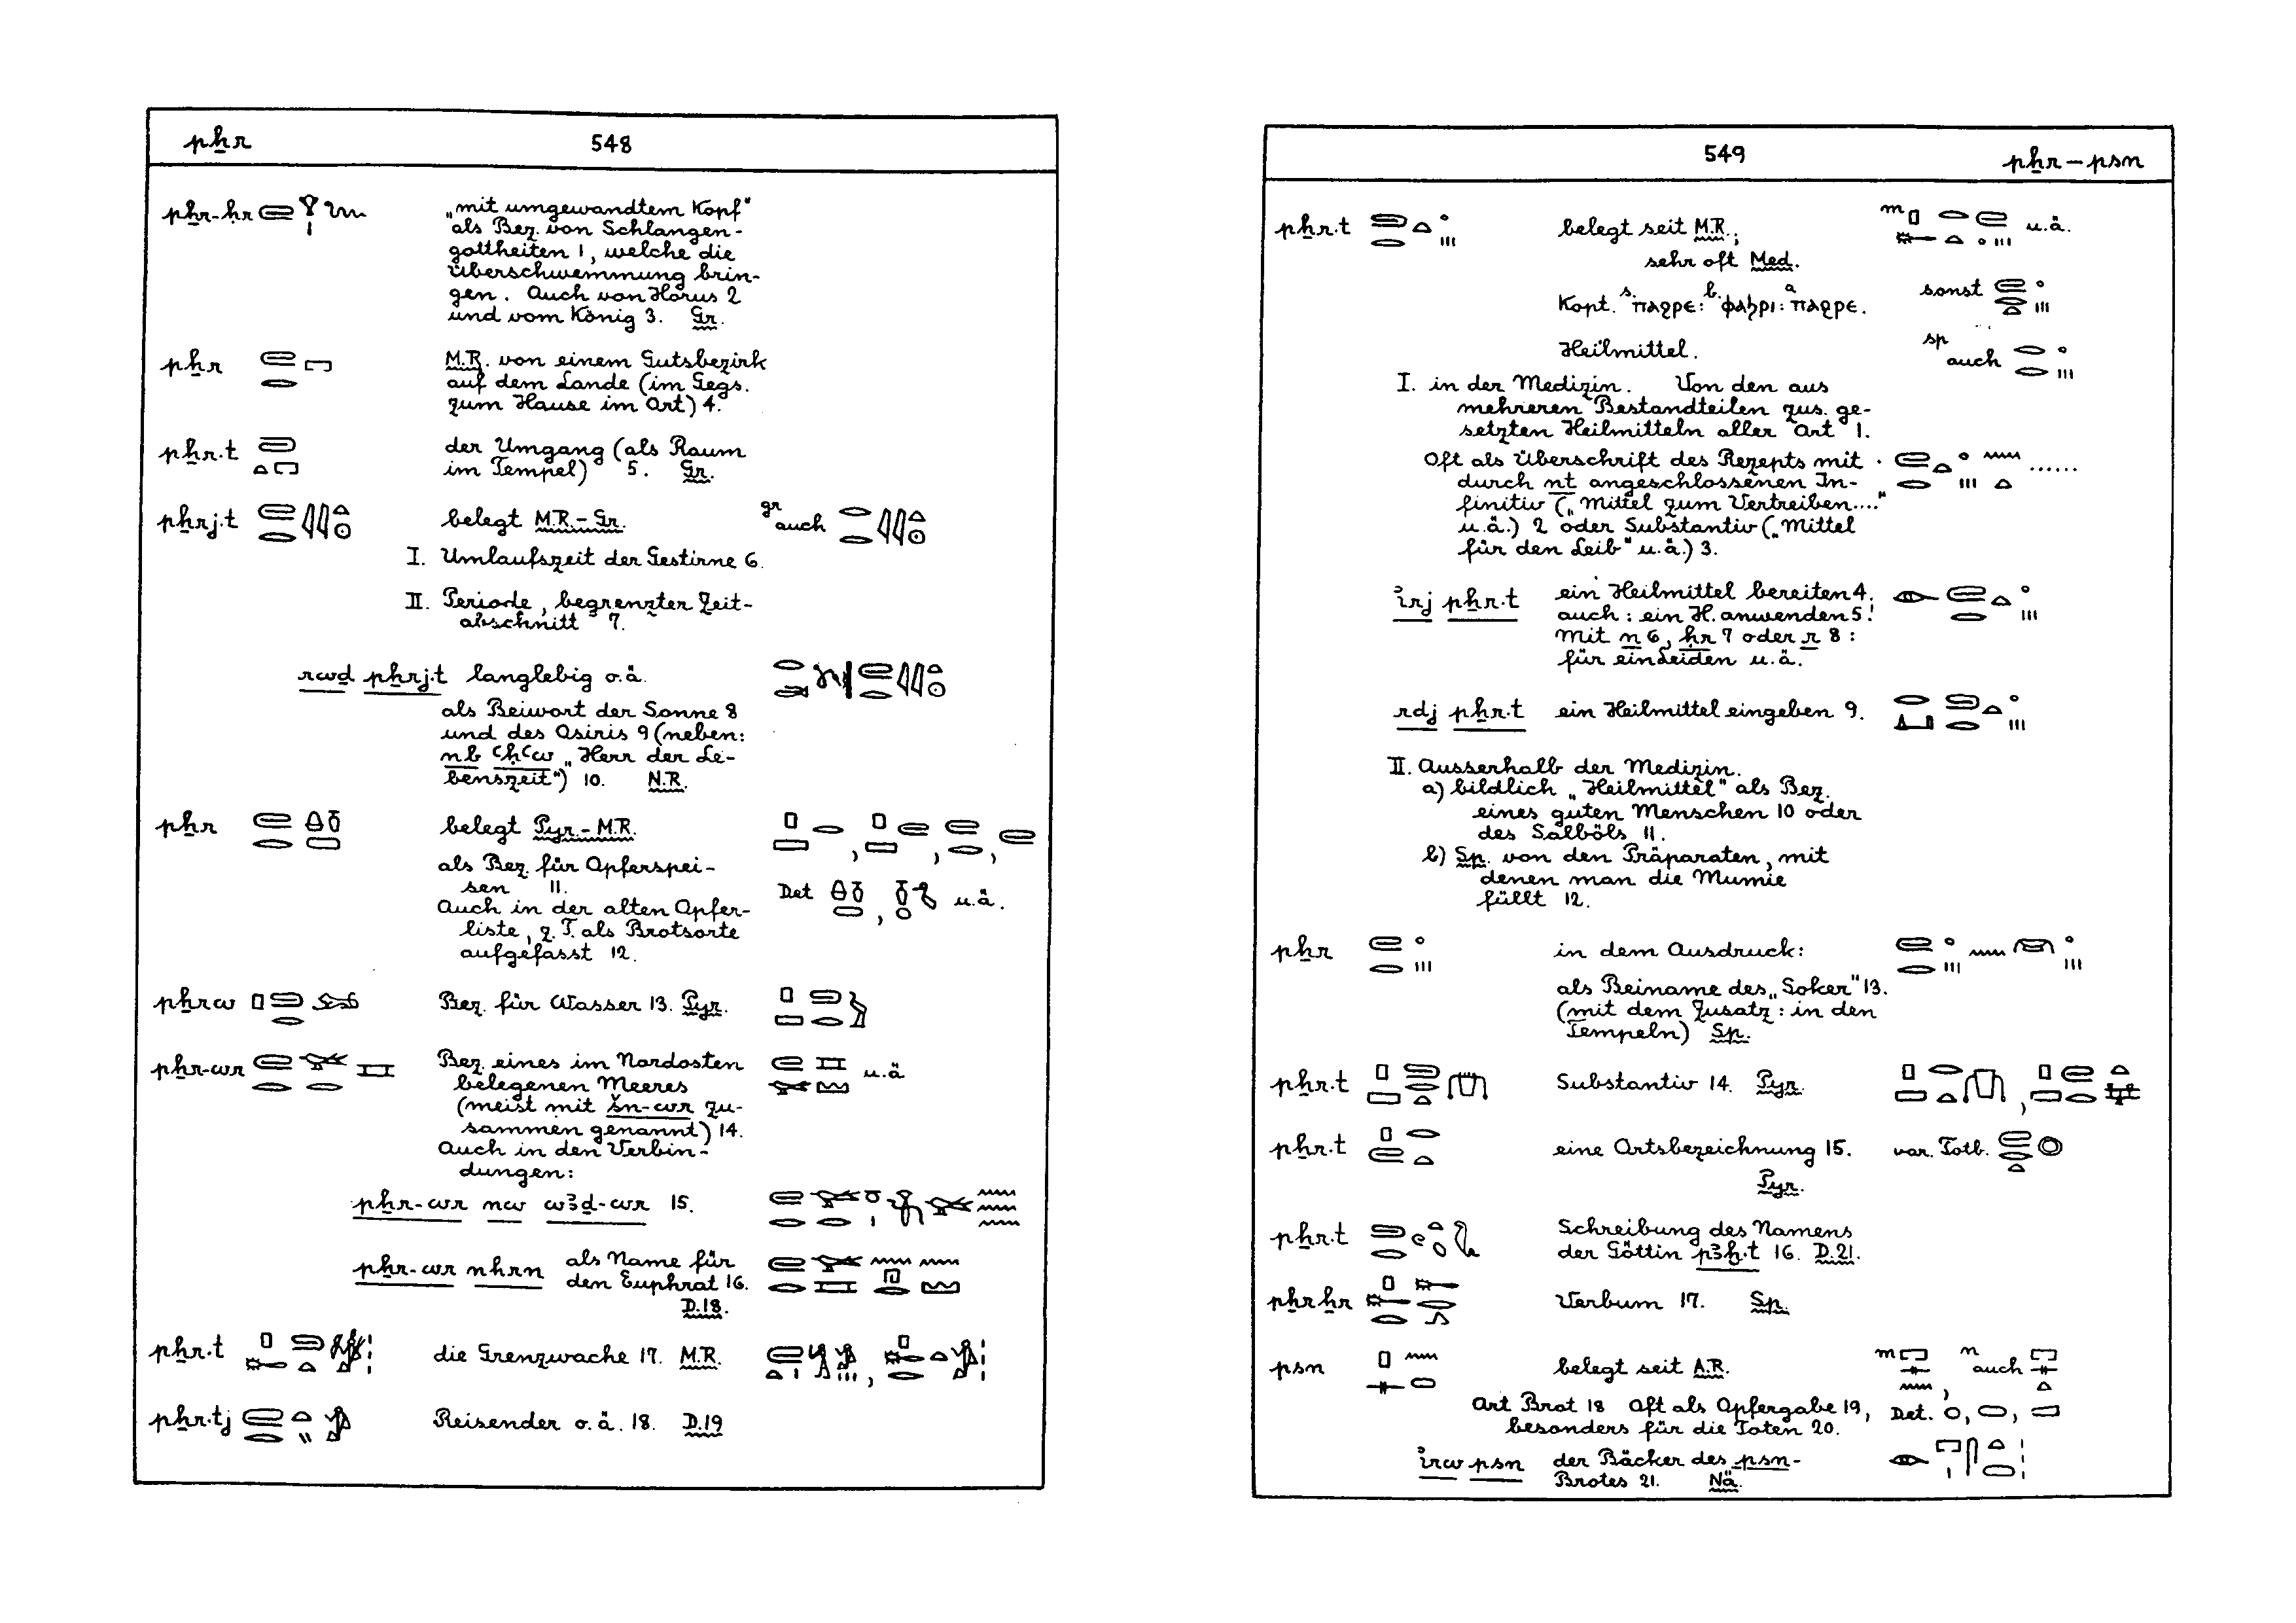 pẖr 548
pẖr-ḥr „mit umgewandtem Kopf“
als Bez. von Schlangen-
gottheiten 1, welche die
Überschwemmung brin-
gen. Auch von Horus 2
und vom König 3. Gr.
pẖr M.R. von einem Gutsbezirk
auf dem Lande (im Gegs.
zum Hause im Ort) 4.
pẖr.t der Umgang (als Raum
im Tempel) 5. Gr.
pẖrj.t belegt M.R.-Gr. gr auch
I. Umlaufszeit der Gestirne 6.
II. Periode, begrenzter Zeit-
abschnitt 7.
rwḏ pẖrj.t langlebig o.ä.
als Beiwort der Sonne 8
und des Osiris 9 (neben:
nb ꜥḥꜥw „Herr der Le-
benszeit“) 10. N.R.
pẖr belegt Pyr.-M.R. , , ,
als Bez. für Opferspei-
sen 11. Det , u.ä.
Auch in der alten Opfer-
liste, z.T. als Brotsorte
aufgefasst 12.
pẖrw Bez. für Wasser 13. Pyr.
pẖr-wr Bez. eines im Nordosten
belegenen Meeres u.ä
(meist mit šn-wr zu-
sammen genannt) 14.
Auch in den Verbin-
dungen:
pẖr-wr nw wꜣḏ-wr 15.
pẖr-wr nhrn als Name für
den Euphrat 16.
D.18.
pẖr.t die Grenzwache 17. M.R. ,
pẖr.tj Reisender o.ä. 18. D.19
549 pẖr-psn
pẖr.t belegt seit M.R.; m u.ä.
sehr oft Med.
Kopt. s. ⲡⲁϩⲣⲉ: b. ⲫⲁϧⲣⲓ: a ⲡⲁϩⲣⲉ. sonst
Heilmittel. sp auch
I. in der Medizin. Von den aus
mehreren Bestandteilen zus. ge-
setzten Heilmitteln aller Art 1.
Oft als Überschrift des Rezepts mit ......
durch nt angeschlossenen In-
finitiv („Mittel zum Vertreiben....“
u.ä.) 2 oder Substantiv („Mittel
für den Leib“ u.ä.) 3.
irj pẖr.t ein Heilmittel bereiten 4.
auch: ein H. anwenden 5!
mit n 6, ḥr 7 oder r 8:
für ein Leiden u.ä.
rdj pẖr.t ein Heilmittel eingeben 9.
II. Ausserhalb der Medizin.
a) bildlich „Heilmittel“ als Bez.
eines guten Menschen 10 oder
des Salböls 11.
b) Sp. von den Präparaten, mit
denen man die Mumie
füllt 12.
pẖr in dem Ausdruck:
als Beiname des „Soker“ 13.
(mit dem Zusatz: in den
Tempeln) Sp.
pẖr.t Substantiv 14. Pyr. ,
pẖr.t eine Ortsbezeichnung 15. var. Totb.
Pyr.
pẖr.t Schreibung des Namens
der Göttin pꜣḫ.t 16. D.21.
pẖrẖr Verbum 17. Sp.
psn belegt seit A.R. m , n auch
Art Brot 18 Oft als Opfergabe 19, Det. , ,
besonders für die Toten 20.
irw psn der Bäcker des psn-
Brotes 21. Nä.